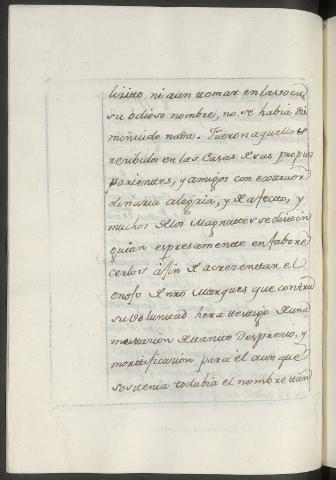 lizito ni aun tomar en la voca
su odioso nombre, no se habia dis
minuido nada. Fueron aquellos
rezibidos en las Casas de sus propios
parientes, y amigos con extraor
dinaria alegria, y de afecto, y
muchos de los Magnates se distin
guian espresamente en fabore
cerlos a fin de acrezentar el
enojo de nro Marques que contra
su voluntad hera testigo de una
mutazion de tanto desprecio, y
mortificazion para el aunque
sostenia todabia el nombre tan